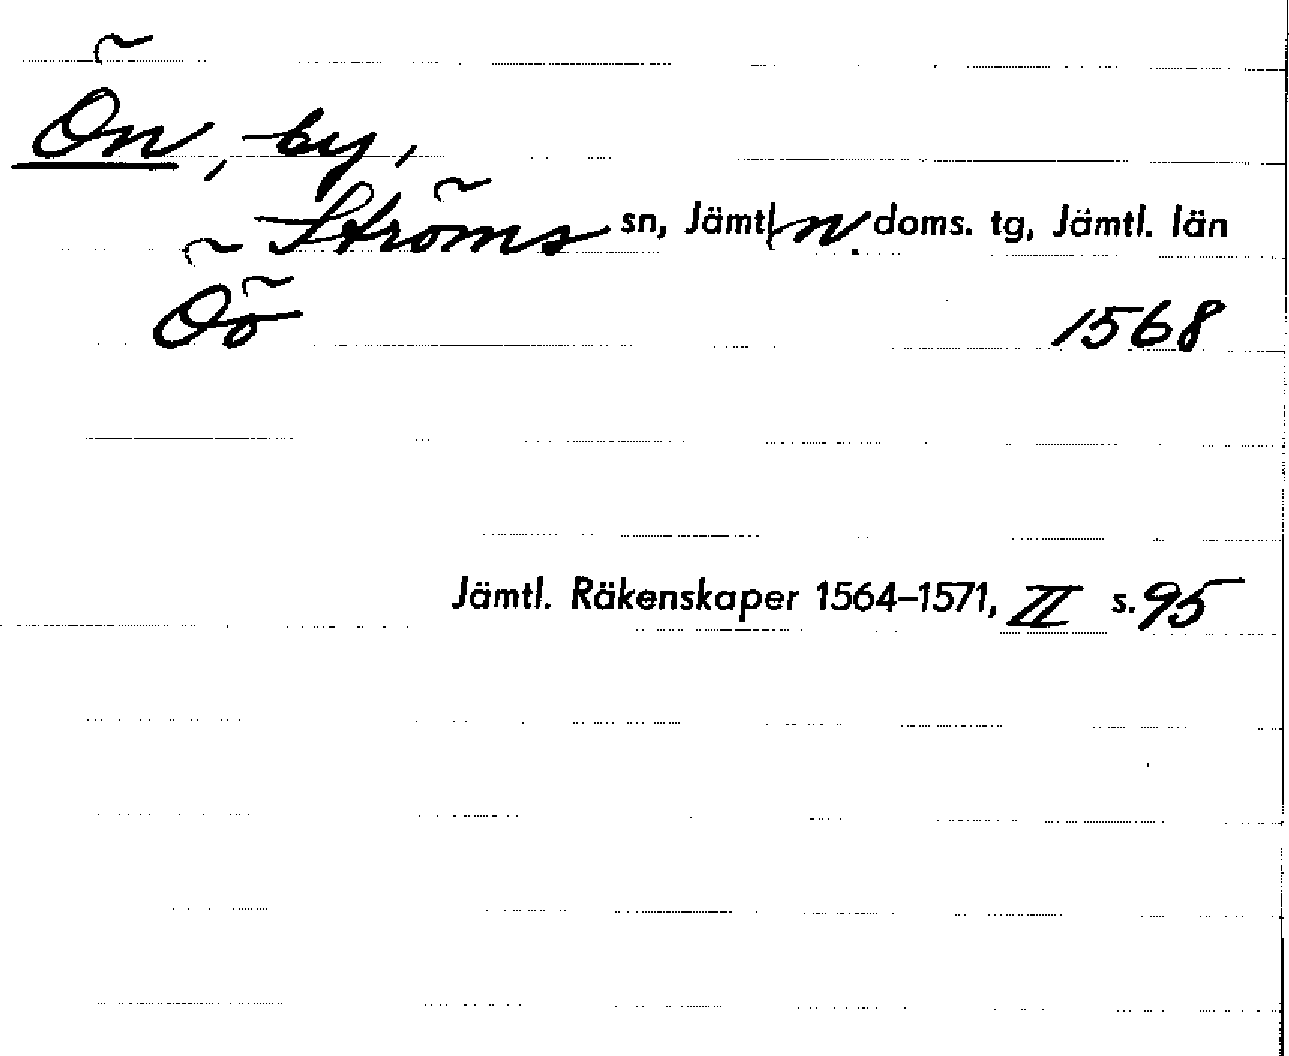 Ön, by,
Ströms sn, Jämtl n. doms. tg, Jämtl. län
Öö 1568
Jämtl. Räkenskaper 1564–1571, II s. 95